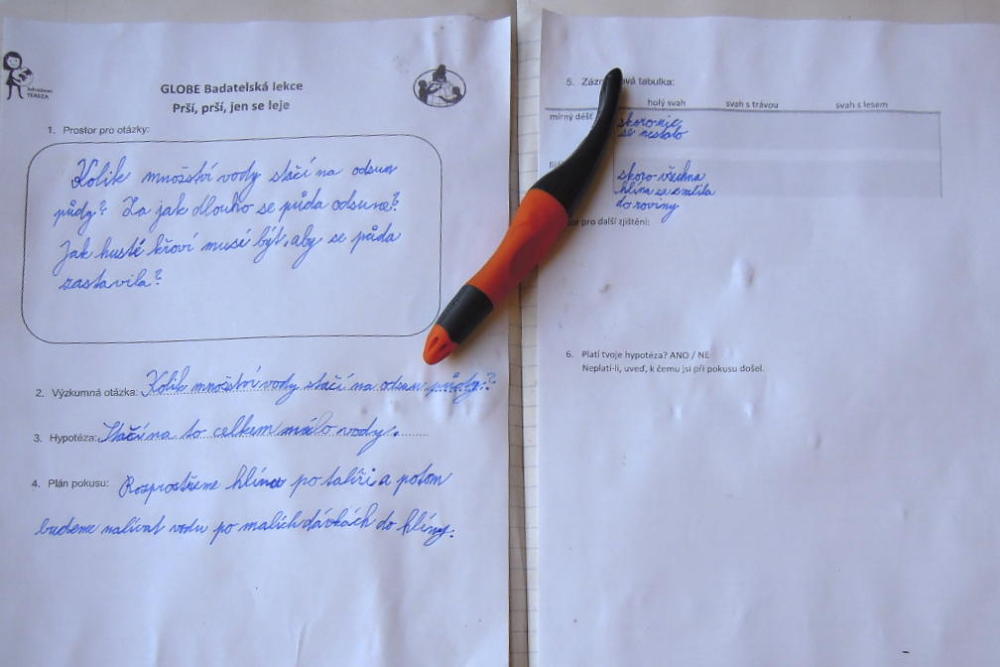 GLOBE Badatelská lekce
Prší, prší, jen se leje
TEREZA
1. Prostor pro otázky:
Kolik množství vody stačí na odsun
půdy? Za jak dlouho se půda odsune?
Jak husté křoví musí být, aby se půda
zastavila?
2. Výzkumná otázka: Kolik množství vody stačí na odsun půdy?
3. Hypotéza: Stačí na to celkem málo vody.
4. Plán pokusu: Rozprostřeme hlínu po talíři a potom
budeme nalívat vodu po malích dávkách do hlíny.
5. tabulka:
holý svah svah s trávou svah s lesem
mírný déšť skoro nic
se nestalo
skoro všechna
hlína se
do roviny
pro další zjištění:
6. Platí tvoje hypotéza? ANO / NE
Neplatí-li, uveď, k čemu jsi při pokusu došel.